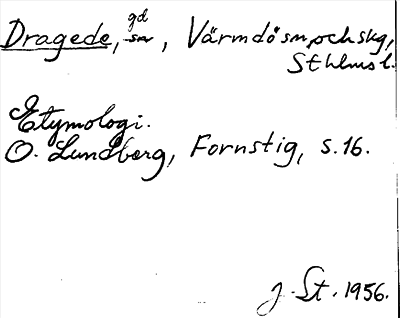 Dragede, gd, Värmdö sn och skg,
Sthlms l.
Etymologi.
O. Lundberg, Fornstig, s. 16.
J. St. 1956.